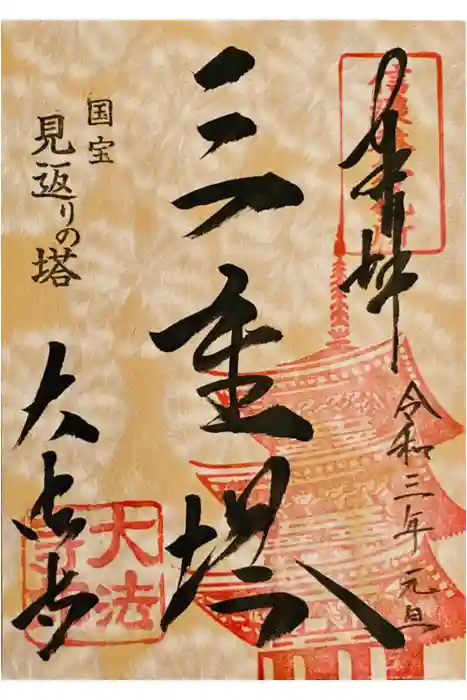 奉拝
令和三年元旦
三重塔
国宝
見返りの塔
大法寺
大法